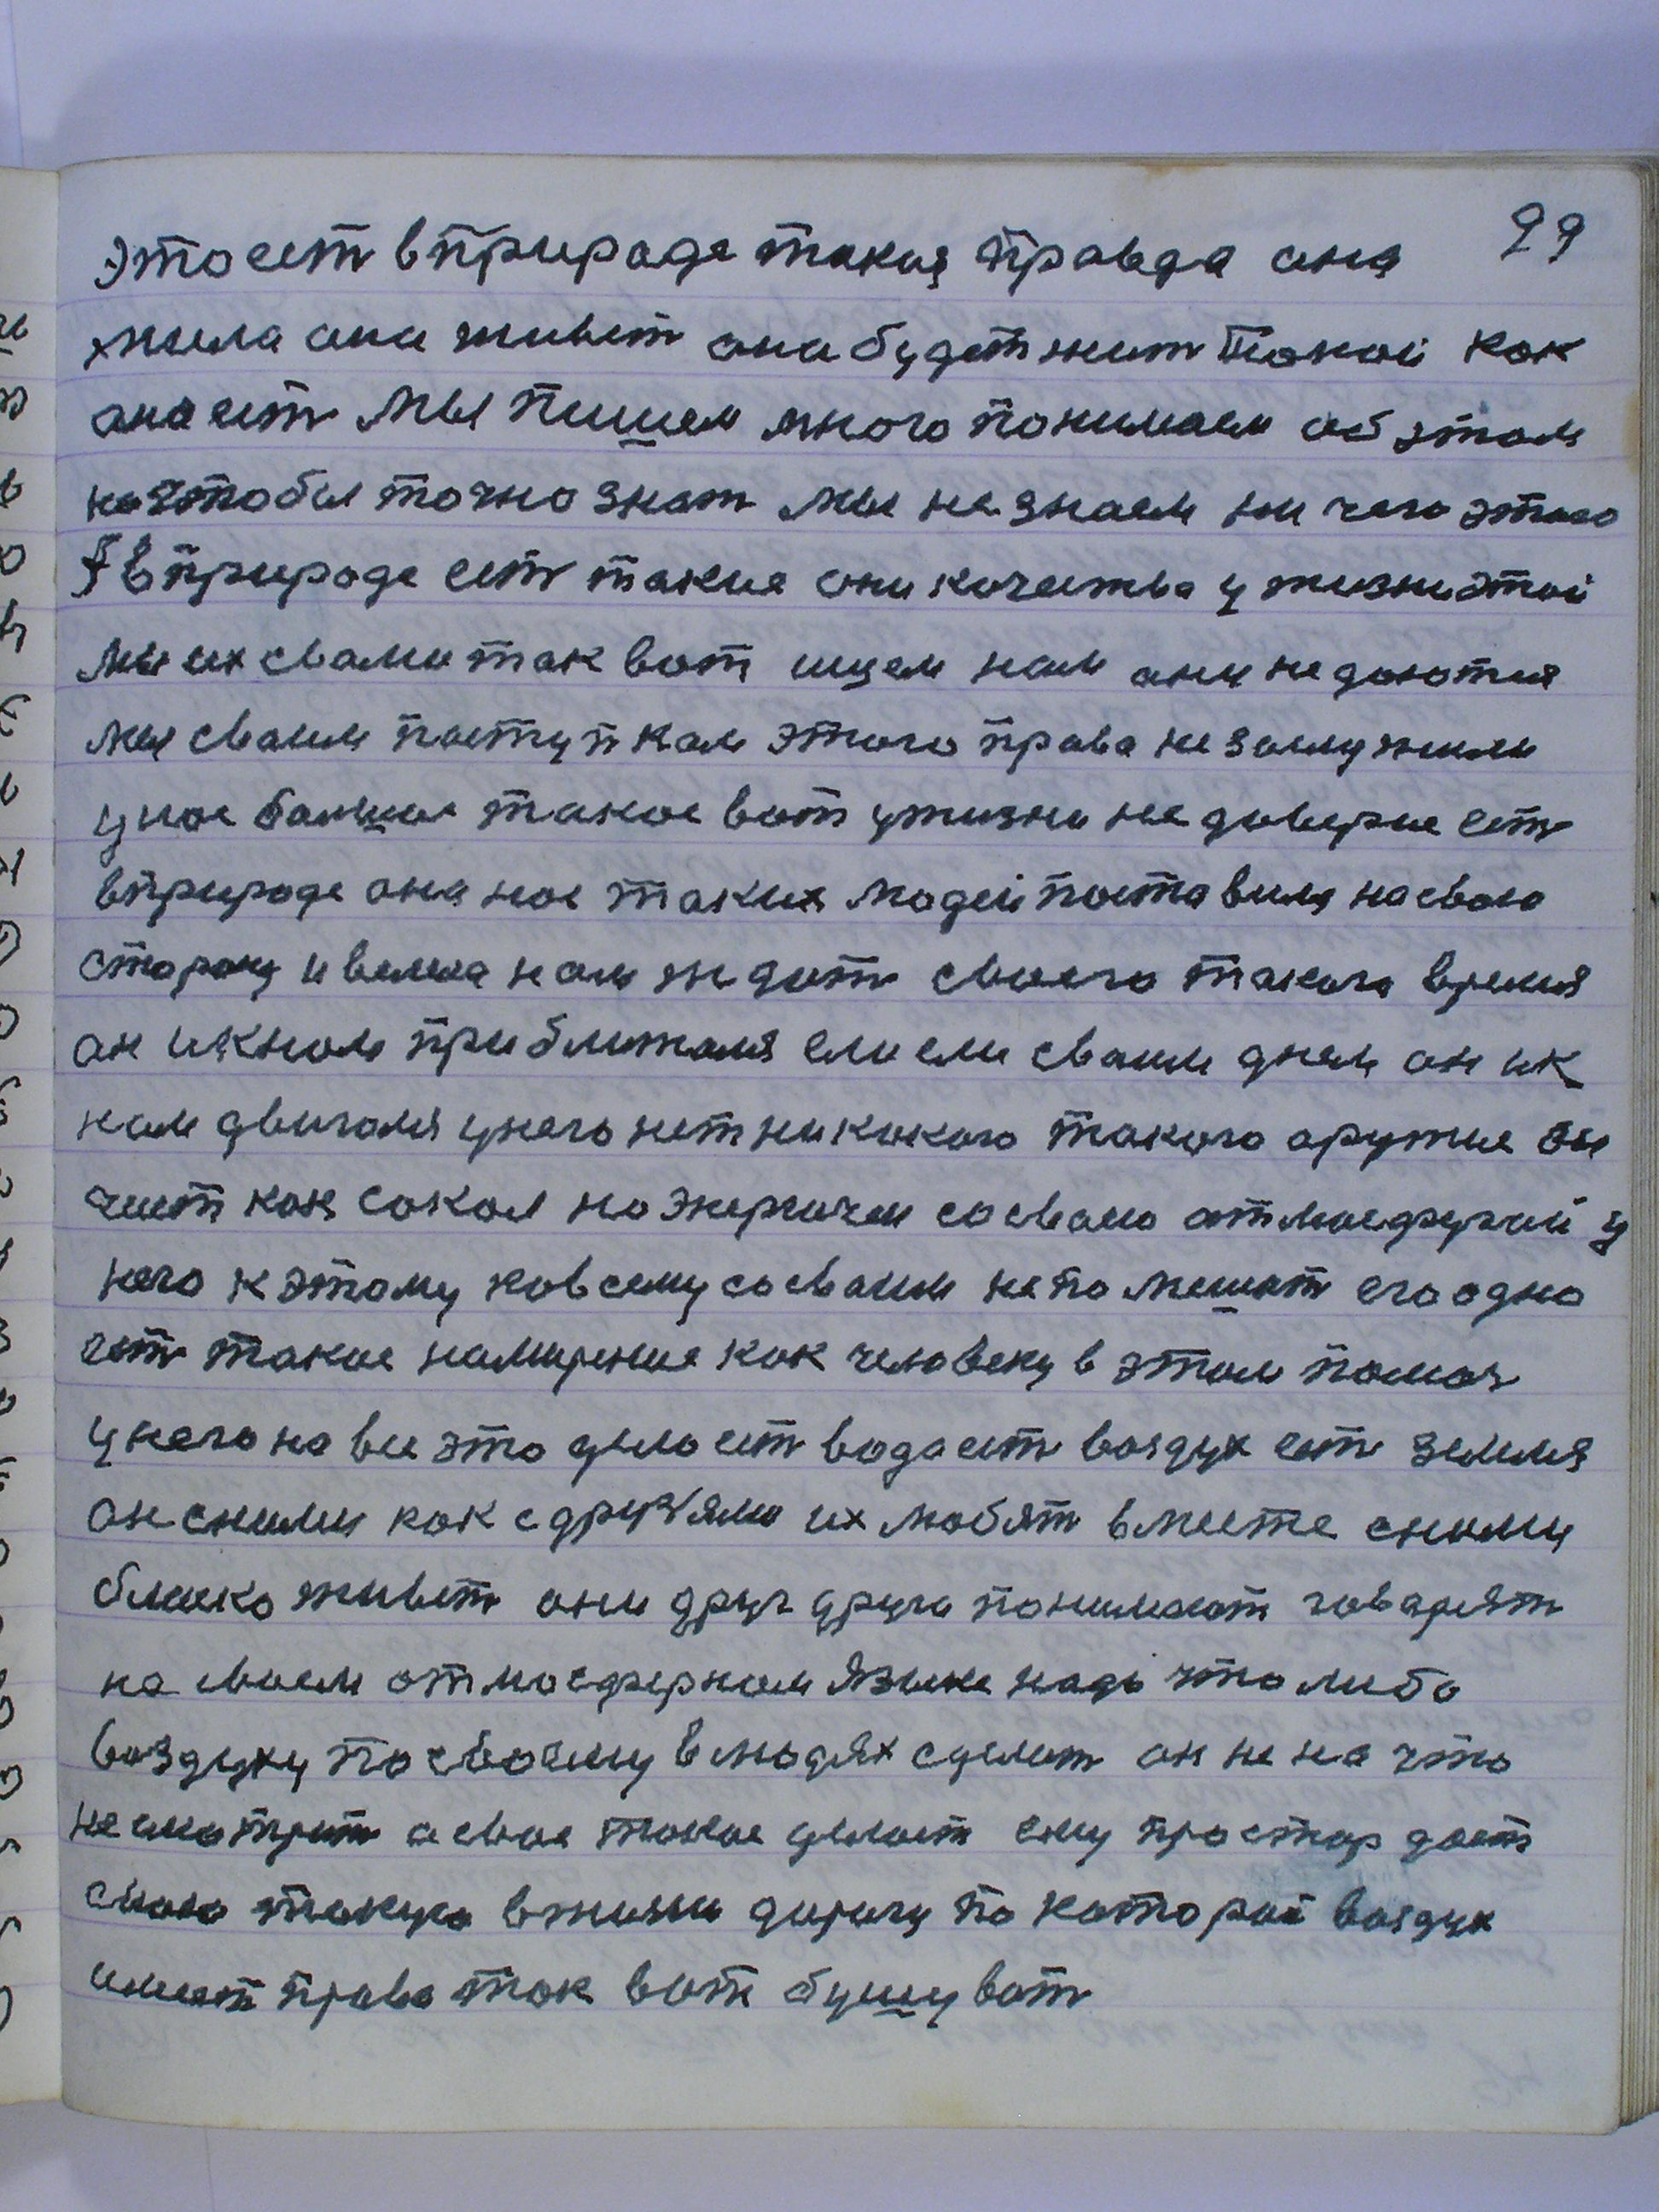 99
это ест в природе такая правда она
жила она живет она будет жит такой как
она ест мы пишем много понимаем об этом
но чтобы точно знат мы не знаем ни чего этого
в природе ест такие они качества у жизни этой
мы их свами так вот ищем нам они не даются
мы сваим поступкам этого права не заслужили
у нас большое такое вот у жизни не доверие ест
в природе она нас таких людей поставила на свою
сторану и велела нам ждат своего такого время
он и к нам приближался ели ели сваим днем он и к
нам двигался у него нет никакого такого оружие он
чист как сокол но энергичен со своею атмосферай у
него к этому ко всему со сваим не помешат его одно
ест такое намерение как человеку в этом помоч
у него на все это дело ест вода ест воздух ест земля
он сними как с друзьями их любят вместе сними
близко живет они друг друга понимают говарят
на своем отмосферном языке надо что либо
воздуху по своему в людях сделат он не на что
не смотрит а свое такое делает ему простор дает
свою такую в жизни дорогу по которай воздух
имеет право так вот бушуват